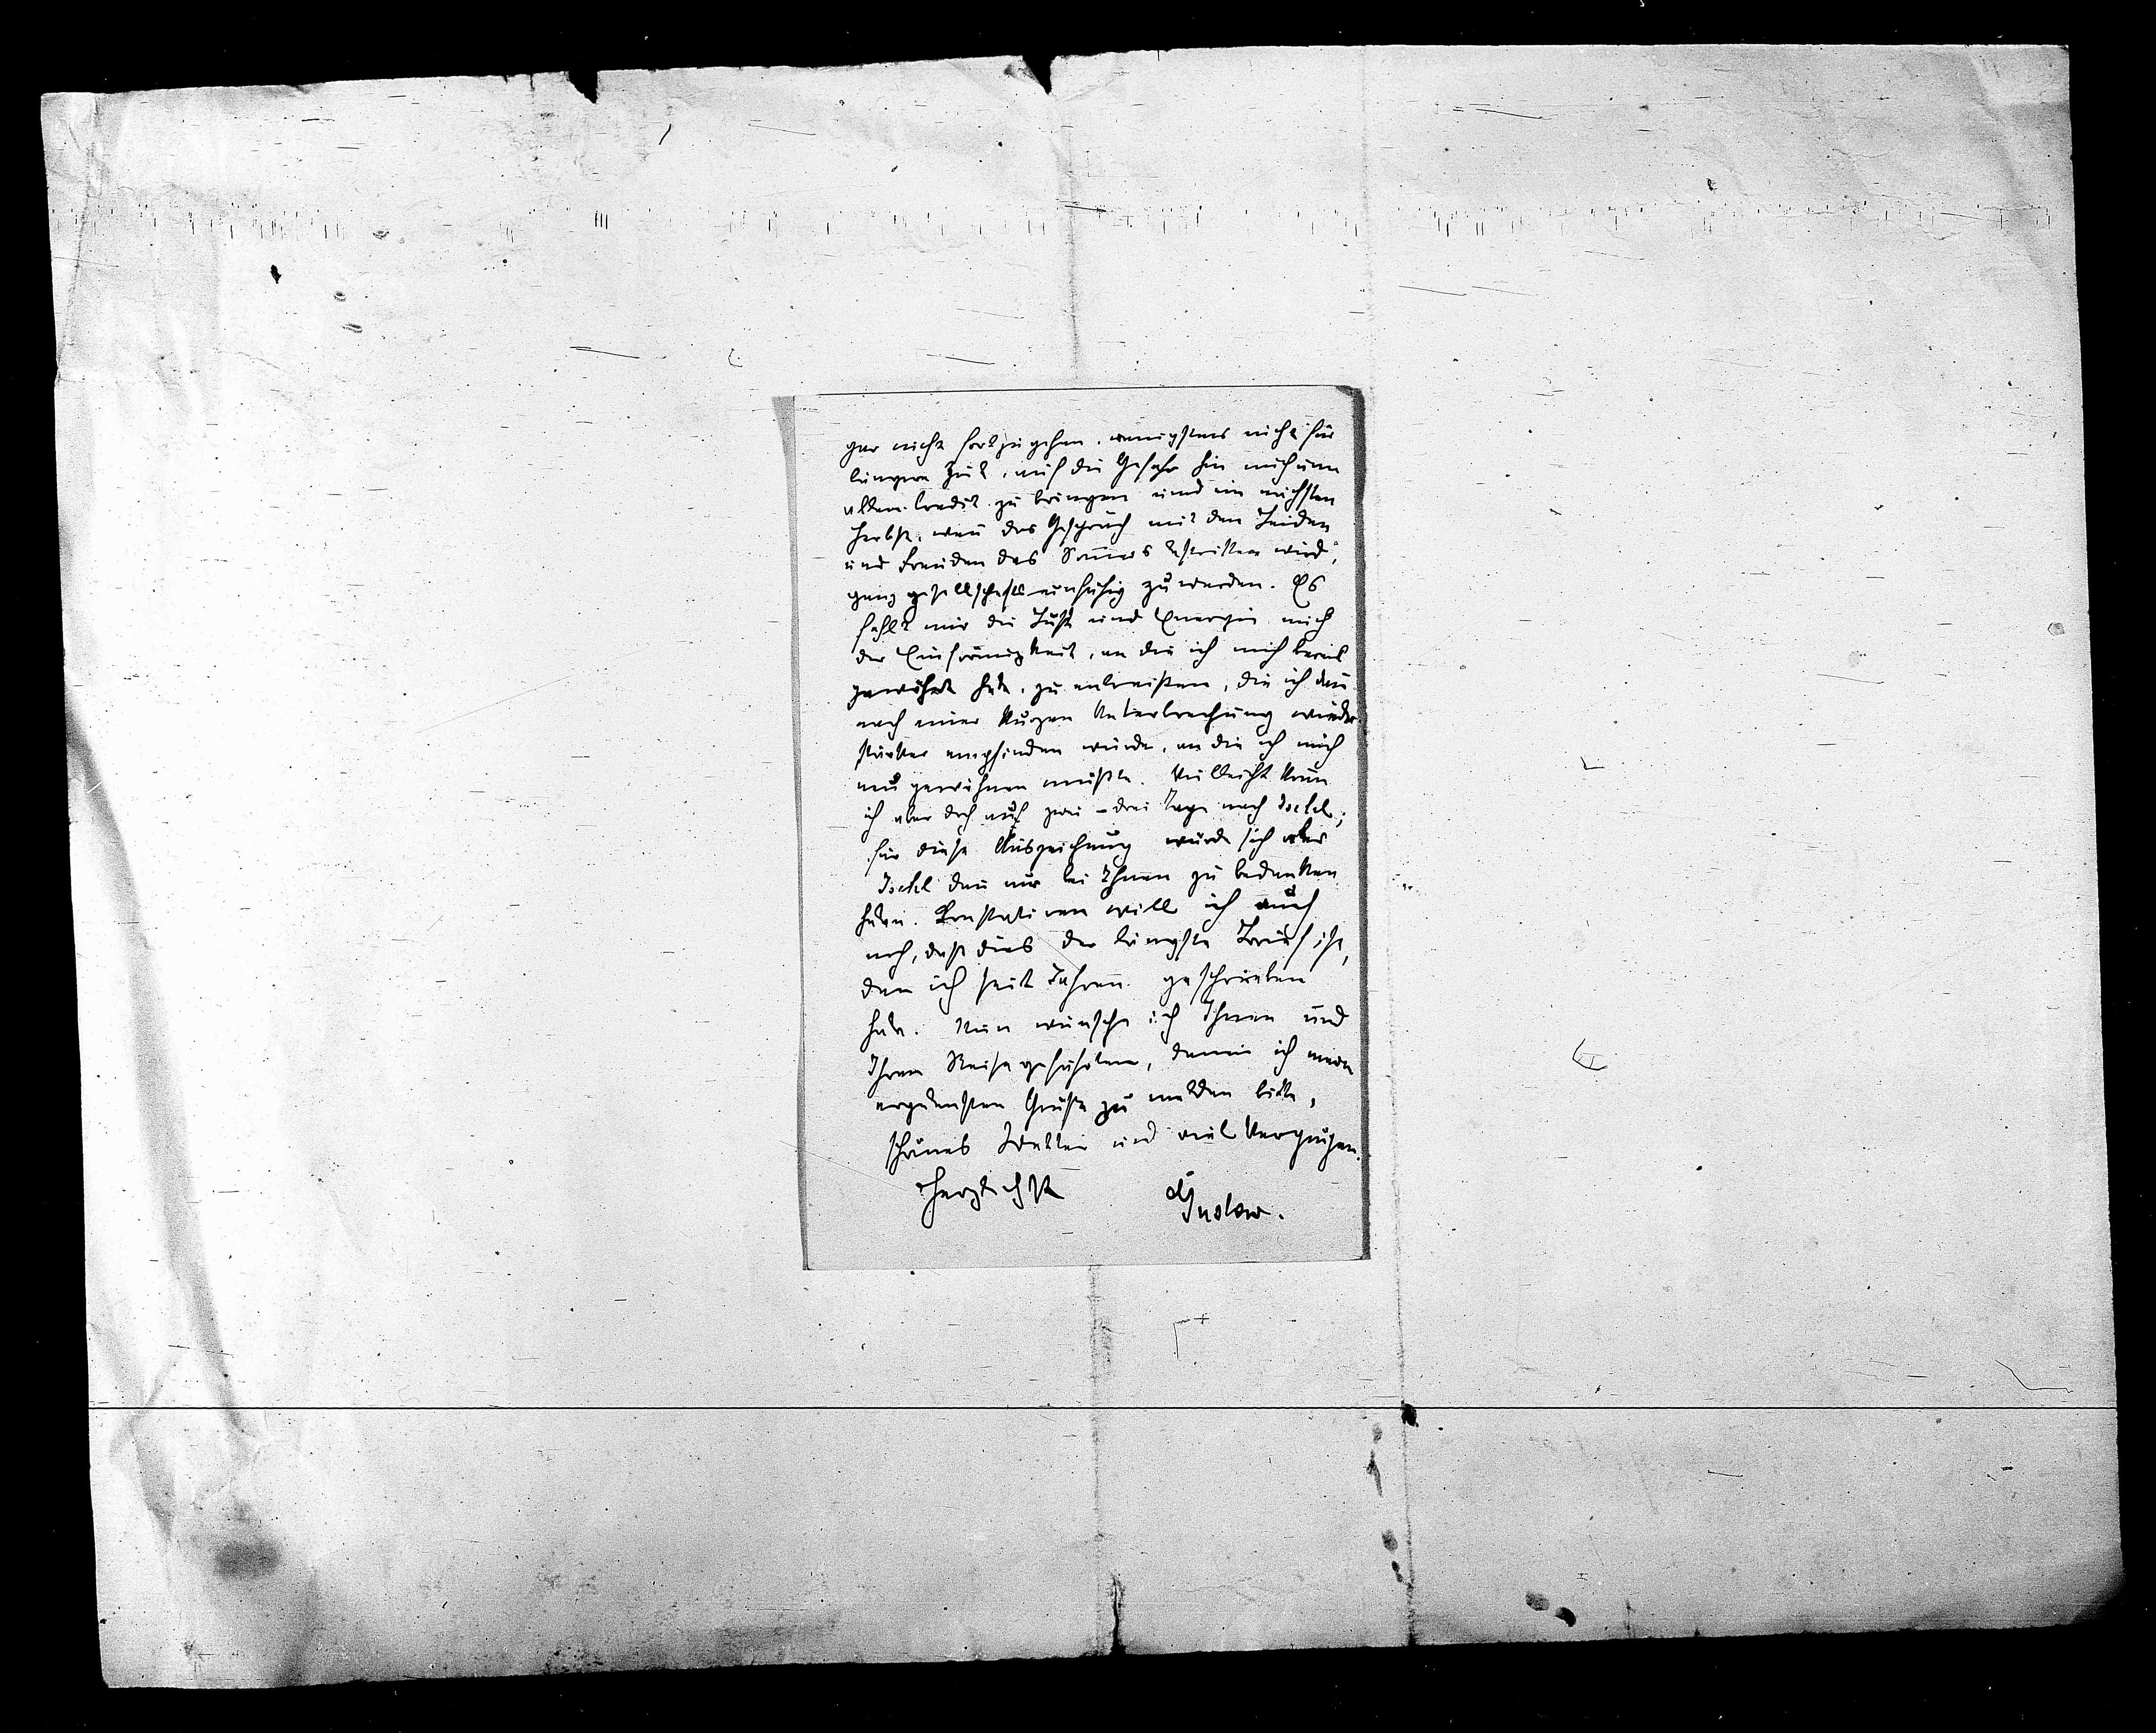 gar nicht fortzugehen, wenigstens nicht für
längere Zeit, auf die Gefahr hin mich um
allen Credit zu bringen und im nächsten
Herbst, wen̄ das Gespräch mit den Leiden
und Freuden des Som̄ers bestritten wird,
ganz gesellschaftsunfähig zu werden. Es
fehlt mir die Lust und Energie mich
der Einförmigkeit, an die ich mich bereits
gewöhnt habe, zu entreißen, die ich dan̄
nach einer kurzen Unterbrechung wieder
stärker empfinden würde, an die ich mich
neu gewöhnen müßte. Vielleicht kom̄
ich aber doch auf zwei – drei Tage nach Ischl;
für diese Auszeichnung würde sich aber
Ischl dan̄ nur bei Ihnen zu bedanken
haben. Konstatiren will ich auch
noch, daß dies der längste Brief ist,
den ich seit Jahren geschrieben
habe. Nun wünsche ich Ihnen und
Ihren Reisegefährten, denen ich meine
ergebensten Grüße zu melden bitte,
schönes Wetter und viel Vergnügen.
Herzlichst Gustav.